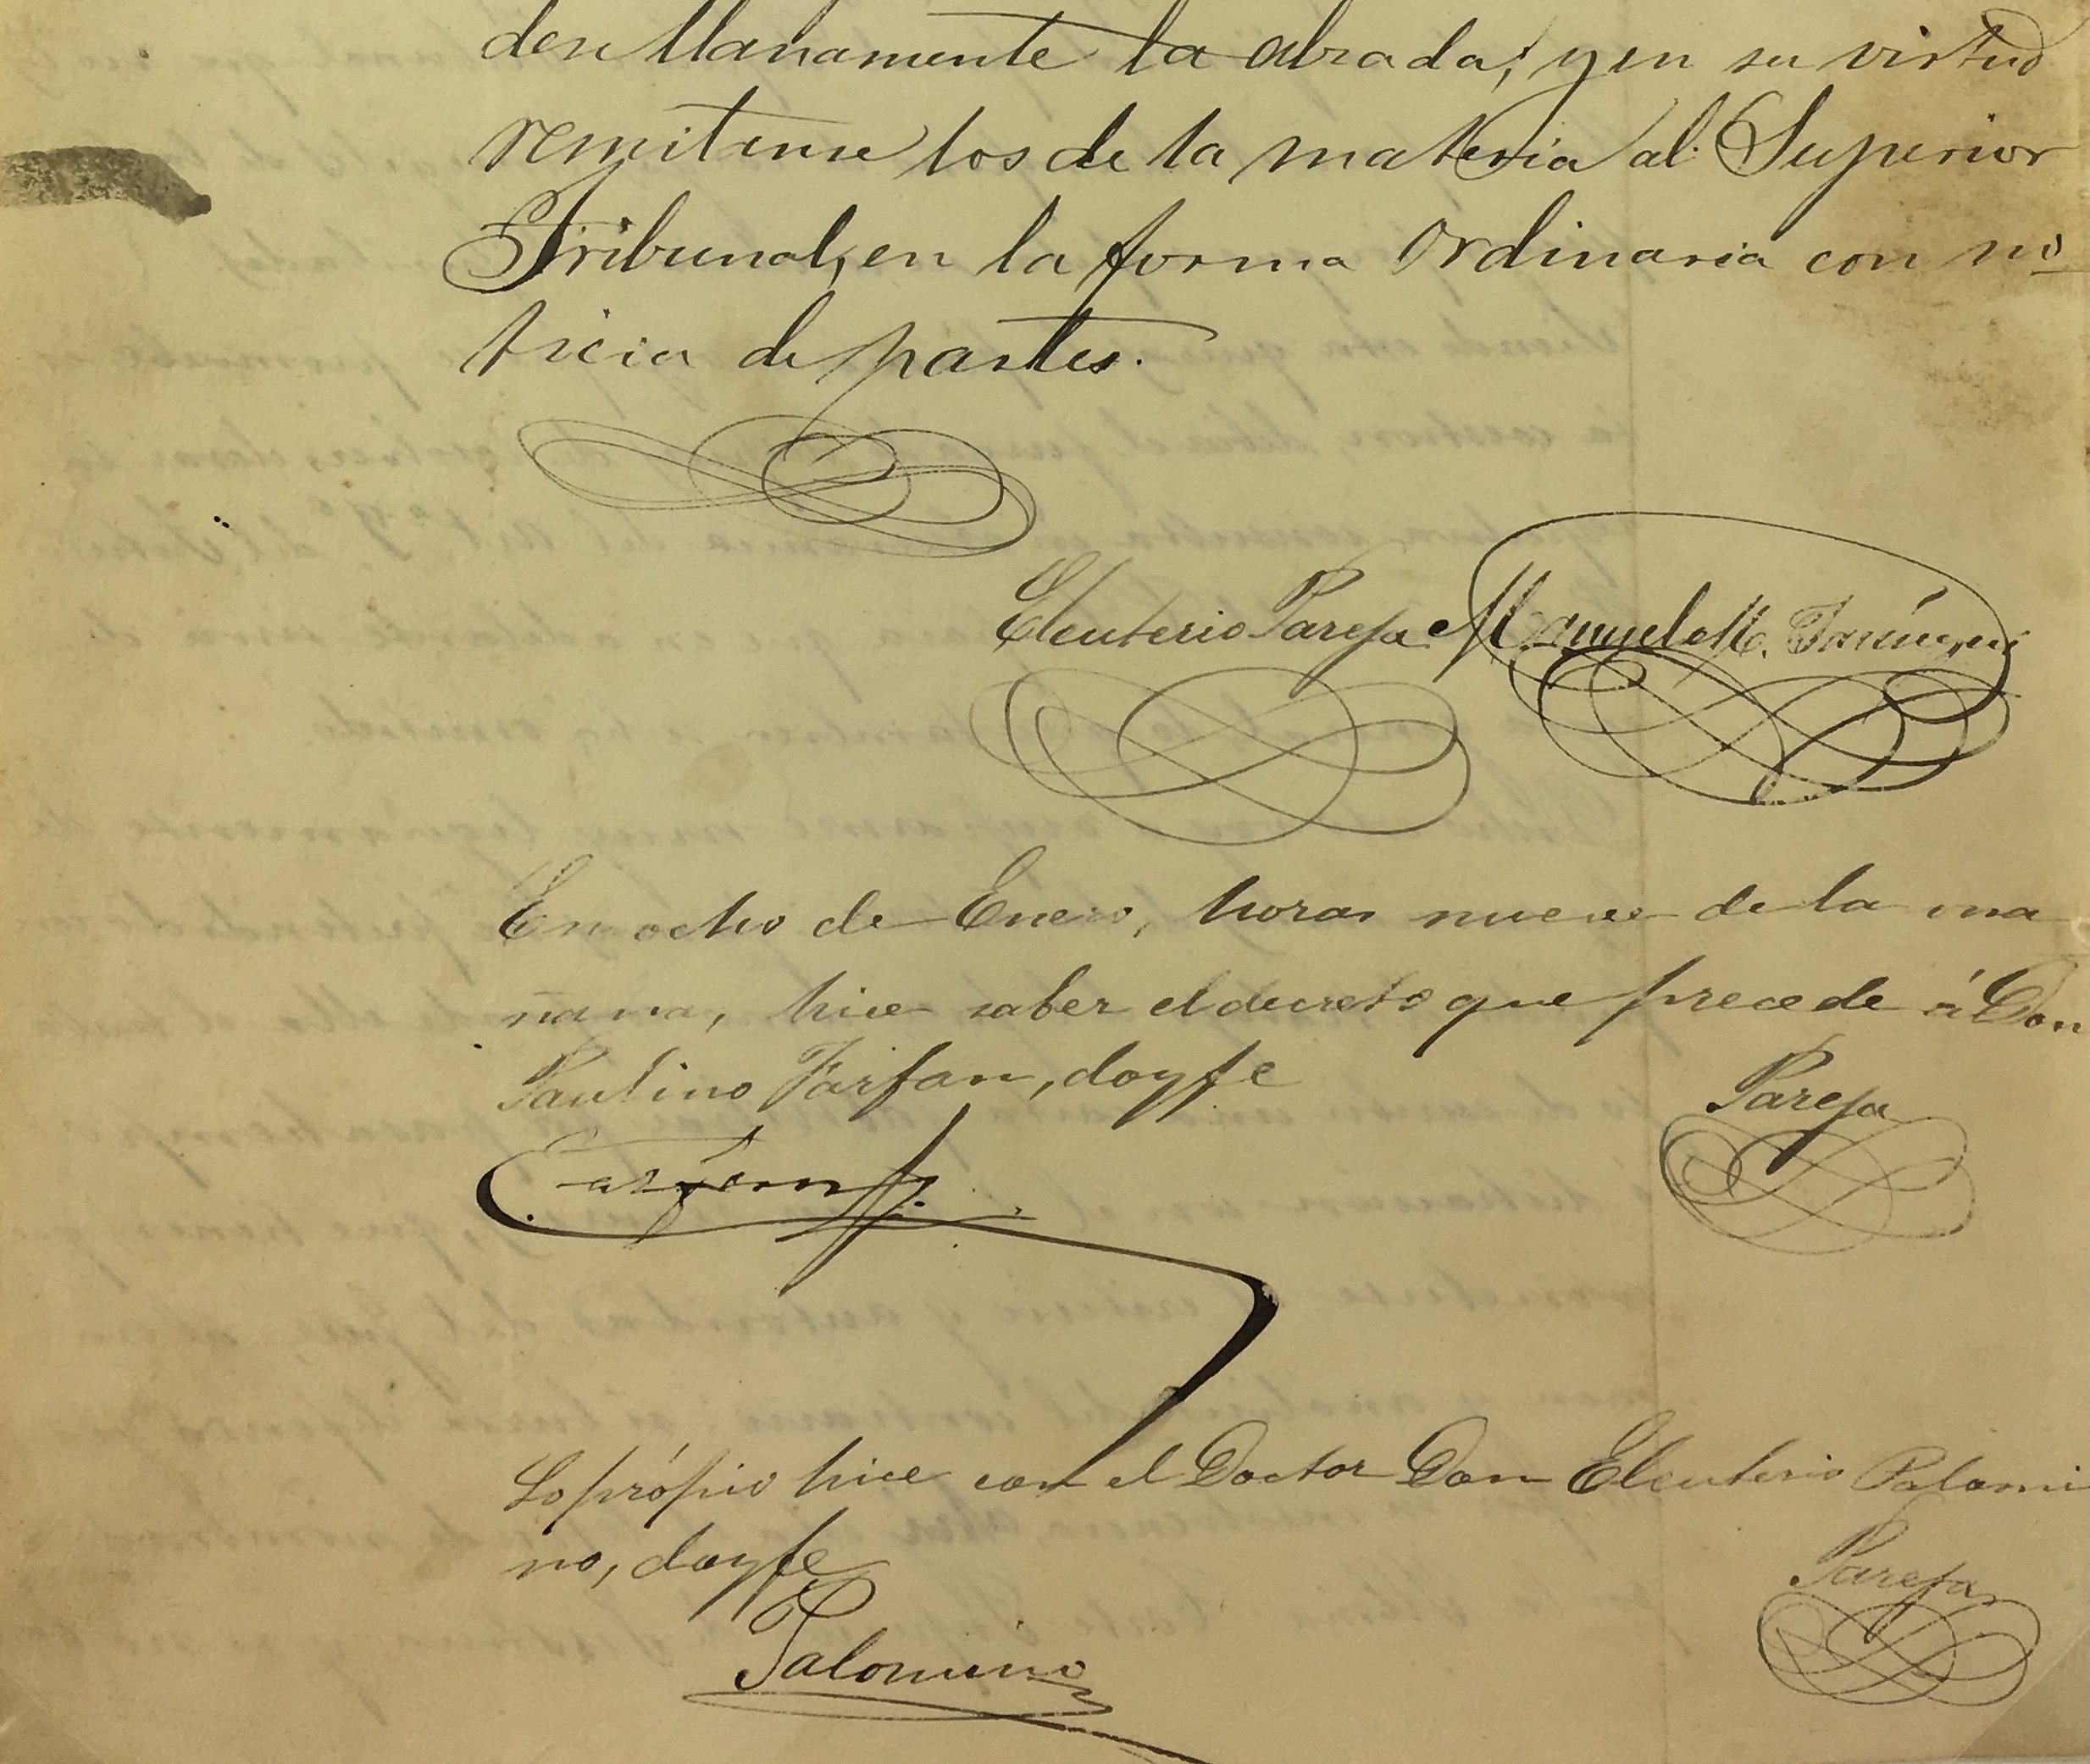 den llanamente la alzada; y en su virtud
remitanse los de la materia al Superior
Tribunal, en la forma ordinaria con no
ticia de partes.
Eleuterio Pareja Manuel M.
En ocho de Enero, horas nueve de la ma
ñana, hice saber el decreto que precede á Don
Paulino Farfan, doy fe
Pareja
Farfan
Lo própio hice con el Doctor Don Eleuterio Palomi
no, doy fe
Pareja
Palomino